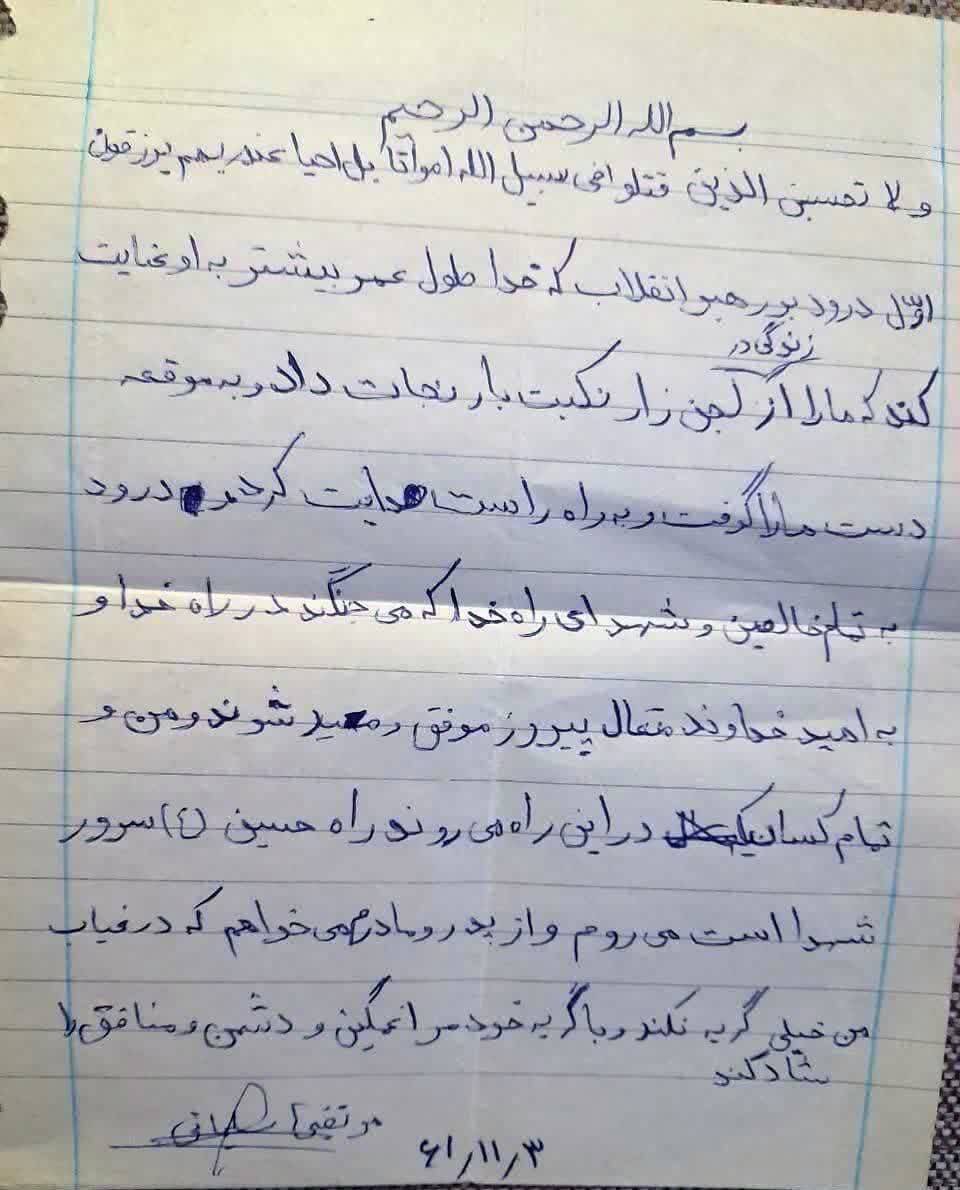 بسم الله الرحمن الرحیم
و لا تحسبن الذین قتلوا فی سبیل الله امواتاً بل احیا عند ربهم یرزقون
اول درود بر رهبر انقلاب که خدا طول عمر بیشتر به او عنایت
زندگی در
کند که ما را از لجن زار نکبت بار نجات داد و به موقعه
دست ما را گرفت و به راه راست هدایت کرد و درود
به تمام خالصین و شهدای راه خدا که می جنگند در راه خدا و
به امید خداوند متعال پیروز موفق و مؤید شوند و من و
تمام کسانیکه در این راه می روند راه حسین (ع) سرور
شهدا است می روم و از پدر و مادرم می خواهم که در غیاب
من خیلی گریه نکنند و با گریه خود مرا غمگین و دشمن و منافق را
شاد کند
مرتضی
۶۱/۱۱/۳